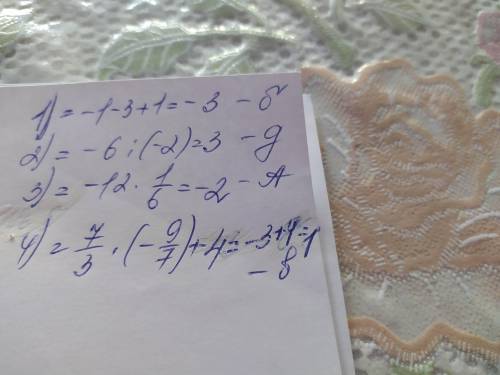 1) = -1-3+1 = -3 - б
2) = -6 : (-2) = 3 - д
3) = -12 · 1/6 = -2 - А
4) = 7/3 · (-9/7) + 4 = -3+4 = 1
- в